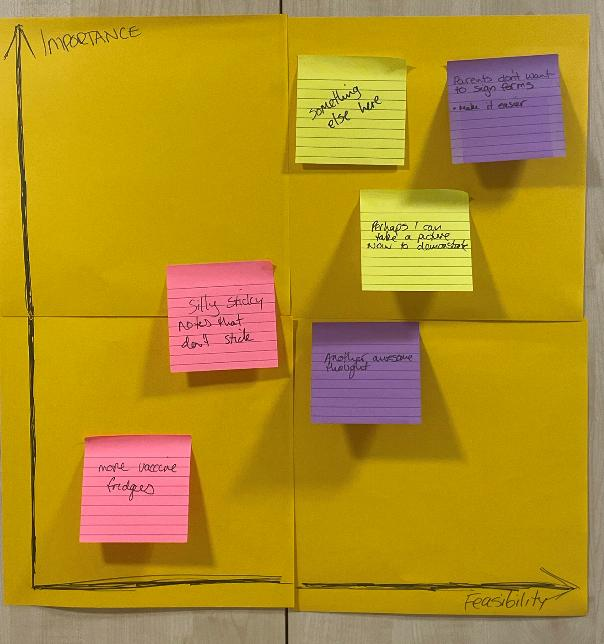 IMPORTANCE
Something
else here
Parents don't want
to sign forms
• make it easier
Perhaps I can
take a picture
Now to demonstrate
Silly Sticky
notes that
don't stick
Another awesome
thought
more vaccine
fridges
Feasibility